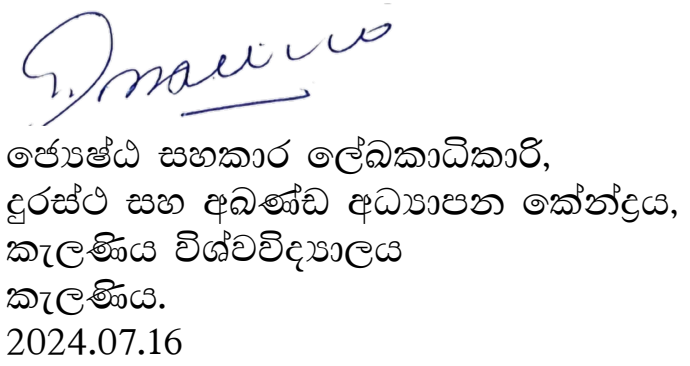 ජ්‍යෙෂ්ඨ සහකාර ලේඛකාධිකාරි,
දුරස්ථ සහ අඛණ්ඩ අධ්‍යාපන කේන්ද්‍රය,
කැලණිය විශ්වවිද්‍යාලය
කැලණිය.
2024.07.16